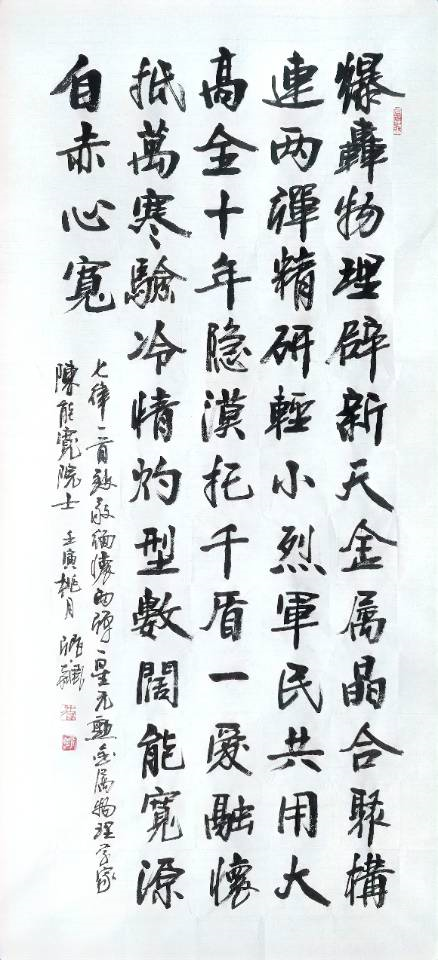 爆轟物理辟新天金属晶合聚構
連两彈精研輕小烈軍民共用大
高全十年隐漠托千盾一爱融懷
抵萬寒驗冷情灼型數闊能寬源
自赤心寬
七律一首致敬緬懷两彈一星元勳金属物理学家
陳能寬院士 壬寅桃月